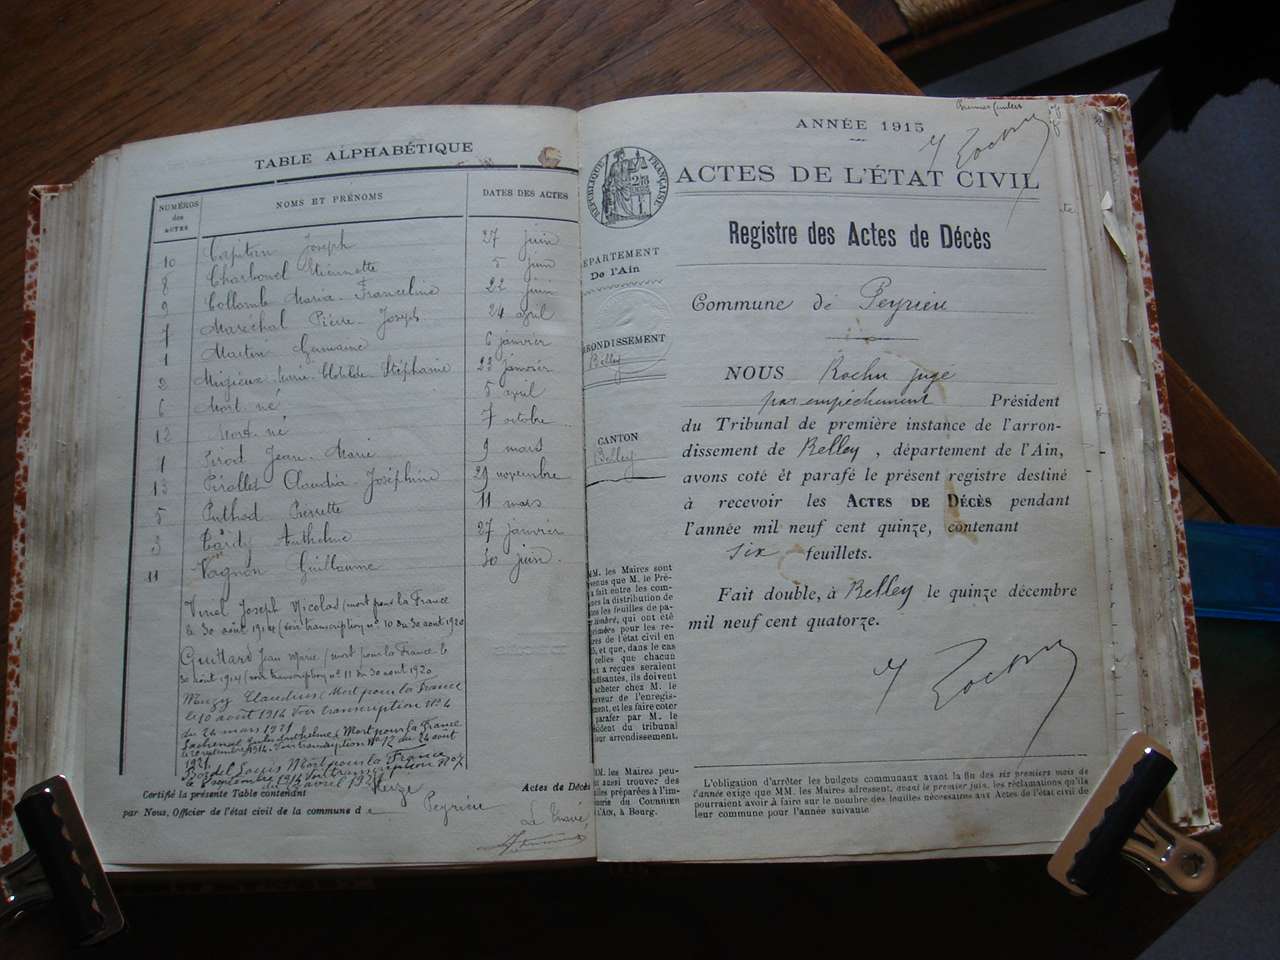 TABLE ALPHABÉTIQUE
NUMÉROS des ACTES
NOMS ET PRÉNOMS
DATES DES ACTES
10 Capitan Joseph 27 juin
8 Charbonel Etiennette 5 juin
9 Collomb Maria Franceline 22 juin
7 Maréchal Pierre Joseph 24 avril
1 Martin Germaine 6 janvier
2 Marie Clotilde Stéphanie 23 janvier
6 Mort né 5 avril
12 Mort né 7 octobre
Pirod Jean Marie 9 mars
13 Pirollet Claudia Joséphine 29 novembre
5 Puthod Pierrette 11 mars
3 Tardy Anthelme 27 janvier
11 Vagnon Guillaume 30 juin
Vinel Joseph Nicolas (mort pour la France
le 30 août 1914 (voir transcription n° 10 du 30 août 1920
Guittard Jean Marie (mort pour la France le
30 août 1914 (voir transcription n° 11 du 30 août 1920
Claudius Mort pour la France
le 10 août 1914 Voir transcription N° 4
du 24 mars 1921
Lachenal Anthelme Mort pour la France
1914. Voir transcription N° 12 du 24 août
1921
Louis Mort pour la France
le 8 septembre 1914 Voir transcription N° 7
du avril 1921
Certifié la présente Table contenant treize Actes de Décès
par Nous, Officier de l'état civil de la commune de Peyrieu
Le Maire,
Premier feuillet
ANNÉE 1915
ACTES DE L'ÉTAT CIVIL
RÉPUBLIQUE FRANÇAISE
Registre des Actes de Décès
ÉPARTEMENT
De l'Ain
Commune de Peyrieu
RONDISSEMENT
Belley
CANTON
Belley
NOUS Rochu juge
par empêchement Président
du Tribunal de première instance de l'arron-
dissement de Belley, département de l'Ain,
avons coté et parafé le présent registre destiné
à recevoir les ACTES DE DÉCÈS pendant
l'année mil neuf cent quinze, contenant
six feuillets.
Fait double, à Belley le quinze décembre
mil neuf cent quatorze.
MM. les Maires sont
venus que M. le Pré-
a fait entre les com-
nes la distribution de
es les feuilles de pa-
timbré, qui ont été
primées pour les re-
res de l'état civil en
5, et que, dans le cas
celles que chacun
a reçues seraient
uffisantes, ils doivent
acheter chez M. le
eveur de l'enregis-
ent, et les faire coter
parafer par M. le
sident du tribunal
ur arrondissement.
MM. les Maires peu-
aussi trouver des
les préparées à l'im-
erie du COURRIER
'AIN, à Bourg.
L'obligation d'arrêter les budgets communaux avant la fin des six premiers mois de
l'année exige que MM. les Maires adressent, avant le premier juin, les réclamations qu'ils
pourraient avoir à faire sur le nombre des feuilles nécessaires aux Actes de l'état civil de
leur commune pour l'année suivante